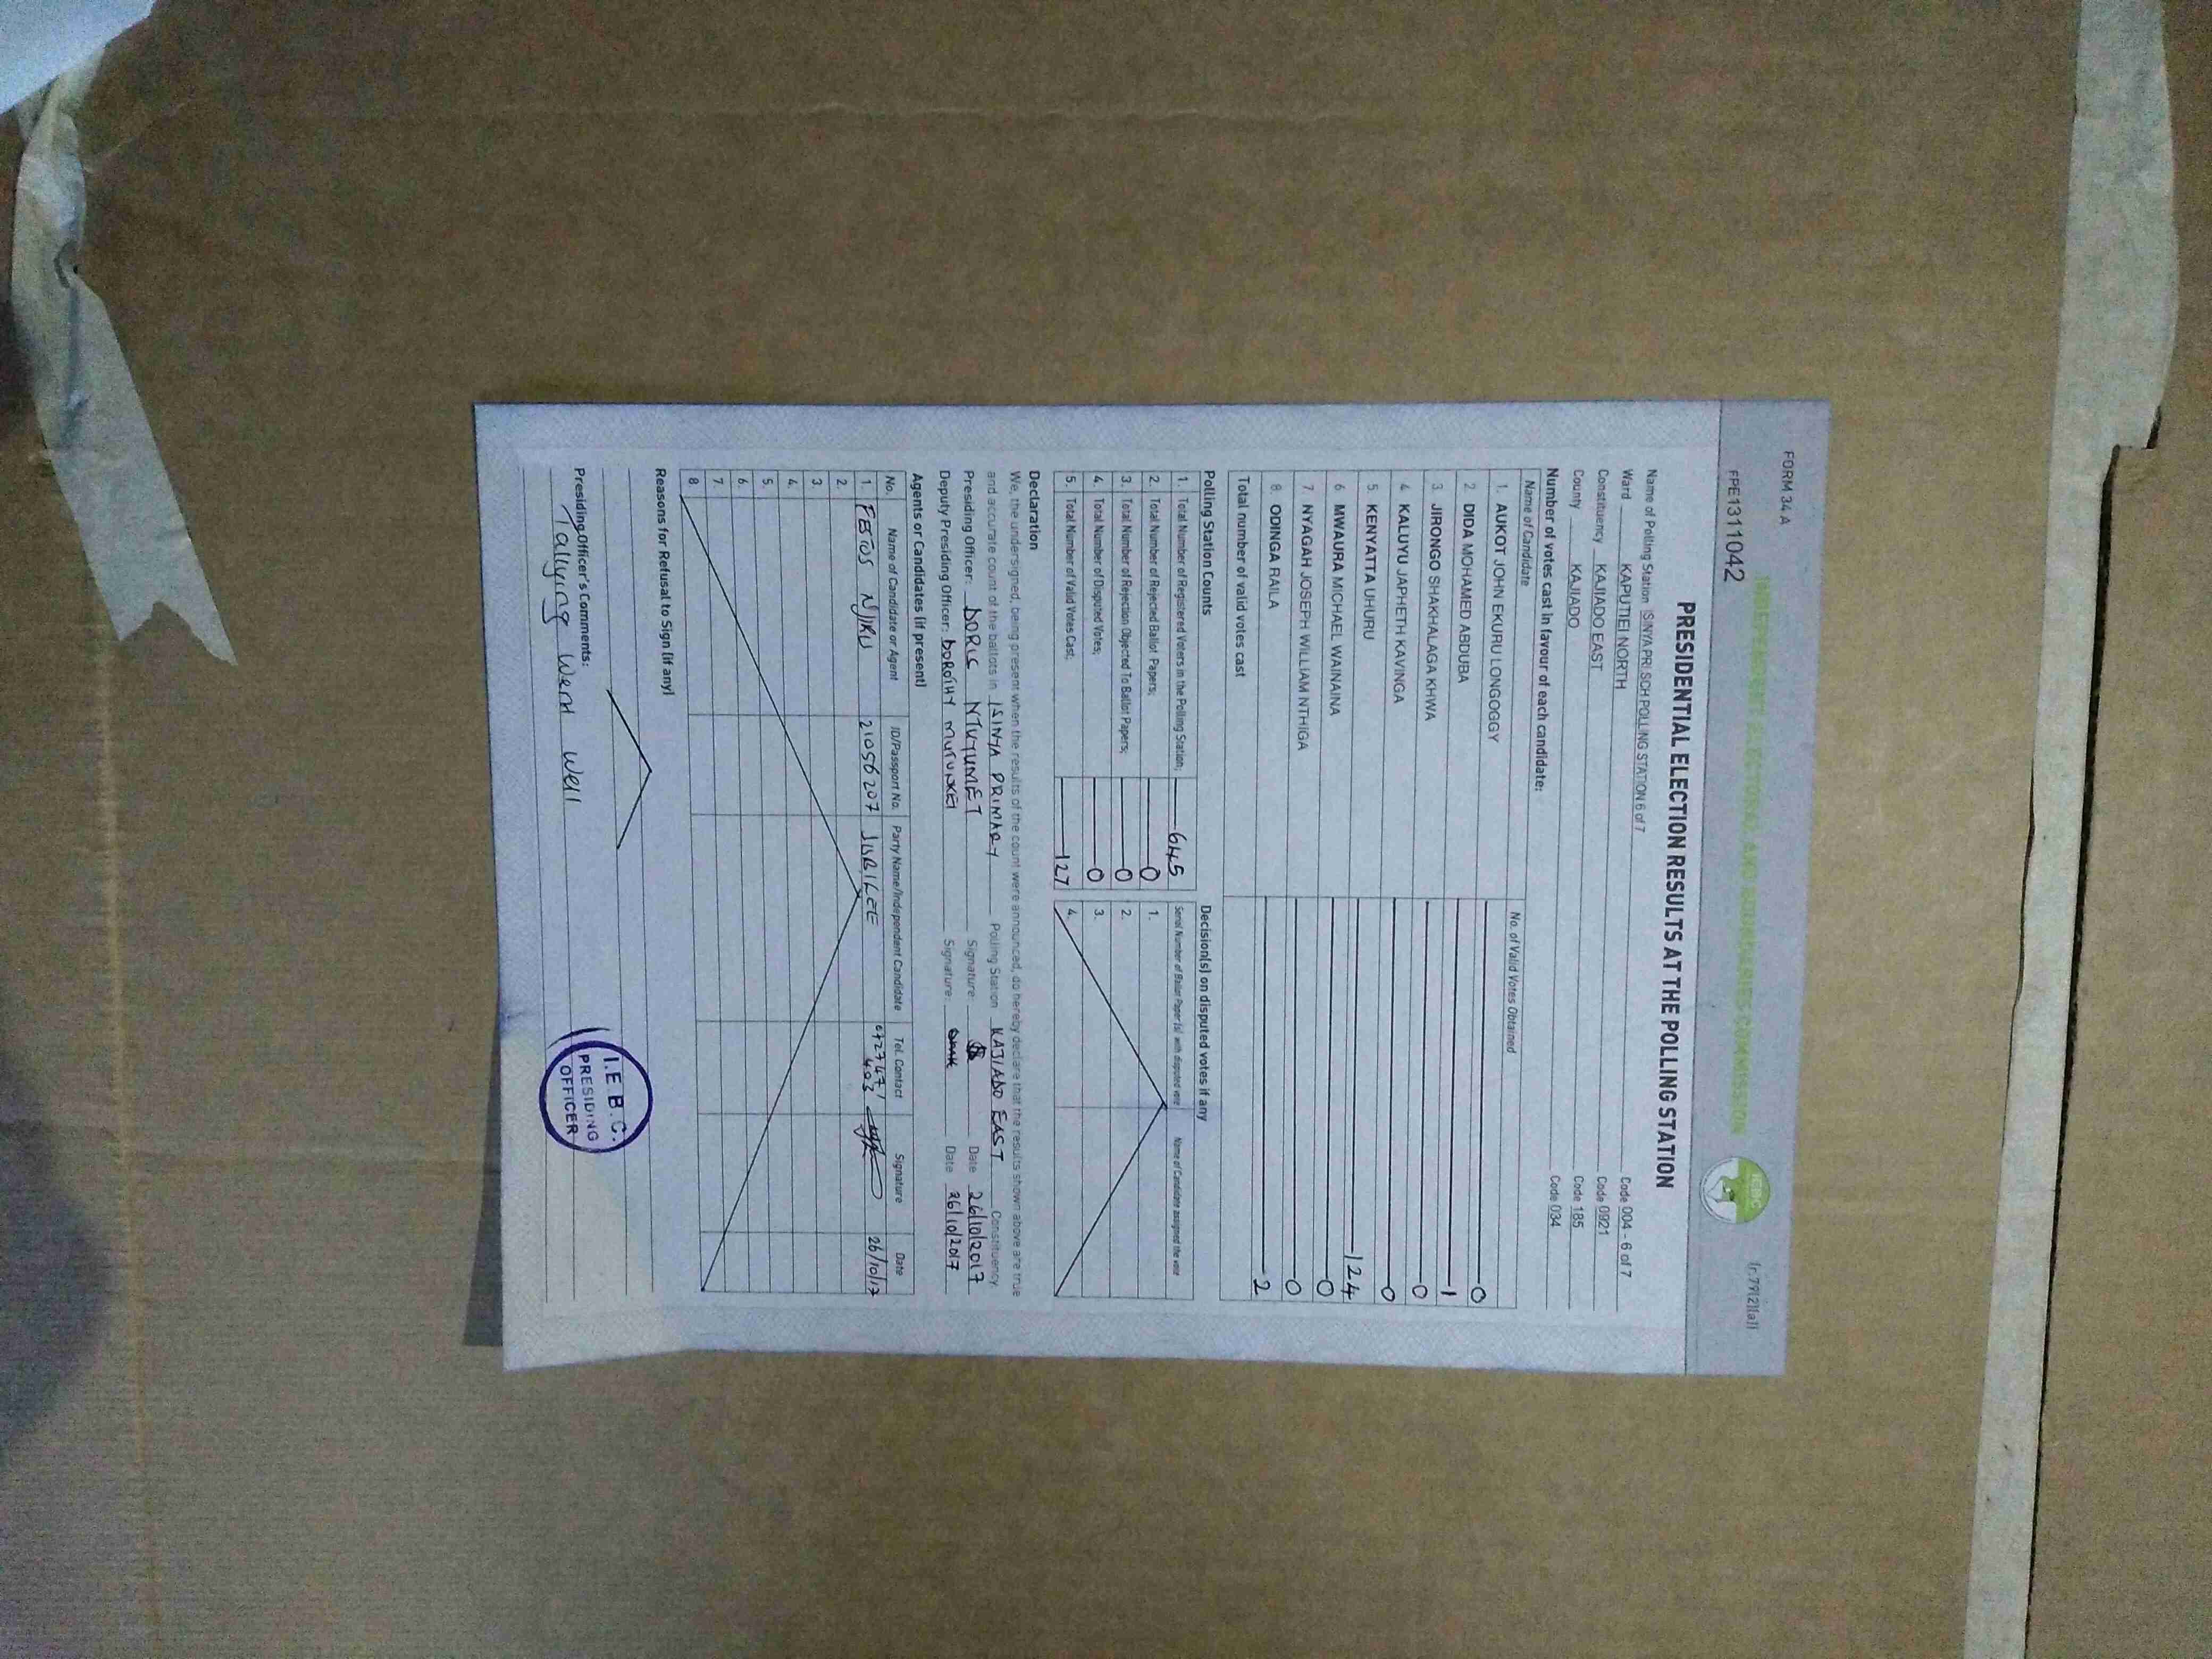 FORM 34 A
(r.79(2)(a))
INDEPENDENT ELECTORAL AND BOUNDARIES COMMISSION
IEBC
FPE1311042
PRESIDENTIAL ELECTION RESULTS AT THE POLLING STATION
Name of Polling Station ISINYA PRI SCH POLLING STATION 6 of 7 Code 004 - 6 of 7
Ward KAPUTIEI NORTH Code 0921
Constituency KAJIADO EAST Code 185
County KAJIADO Code 034
Number of votes cast in favour of each candidate:
Name of Candidate No. of Valid Votes Obtained
1. AUKOT JOHN EKURU LONGOGGY 0
2. DIDA MOHAMED ABDUBA 1
3 JIRONGO SHAKHALAGA KHWA 0
4 KALUYU JAPHETH KAVINGA 0
5. KENYATTA UHURU 124
6 MWAURA MICHAEL WAINAINA 0
7. NYAGAH JOSEPH WILLIAM NTHIGA 0
8. ODINGA RAILA 2
Total number of valid votes cast
Polling Station Counts
1. Total Number of Registered Voters in the Polling Station; 645
2. Total Number of Rejected Ballot Papers; 0
3. Total Number of Rejection Objected To Ballot Papers; 0
4. Total Number of Disputed Votes; 0
5. Total Number of Valid Votes Cast; 127
Decision(s) on disputed votes if any
Serial Number of Ballot Paper (s) with disputed vote Name of Candidate assigned the vote
1.
2.
3.
4.
Declaration
We, the undersigned, being present when the results of the count were announced, do hereby declare that the results shown above are true
and accurate count of the ballots in ISINYA PRIMARY Polling Station KAJIADO EAST Constituency
Presiding Officer: DORIS NTUYUMET Signature: Date 26/10/2017
Deputy Presiding Officer: DOROTHY MUTUNKEI Signature: Date 26/10/2017
Agents or Candidates (if present)
No. Name of Candidate or Agent ID/Passport No. Party Name/Independent Candidate Tel. Contact Signature Date
1. NJIRU 21056207 JUBILEE 26/10/17
2.
3.
4.
5.
6.
7.
8.
Reasons for Refusal to Sign (if any)
Presiding Officer's Comments:
Tallying went well
I.E.B.C.
PRESIDING
OFFICER